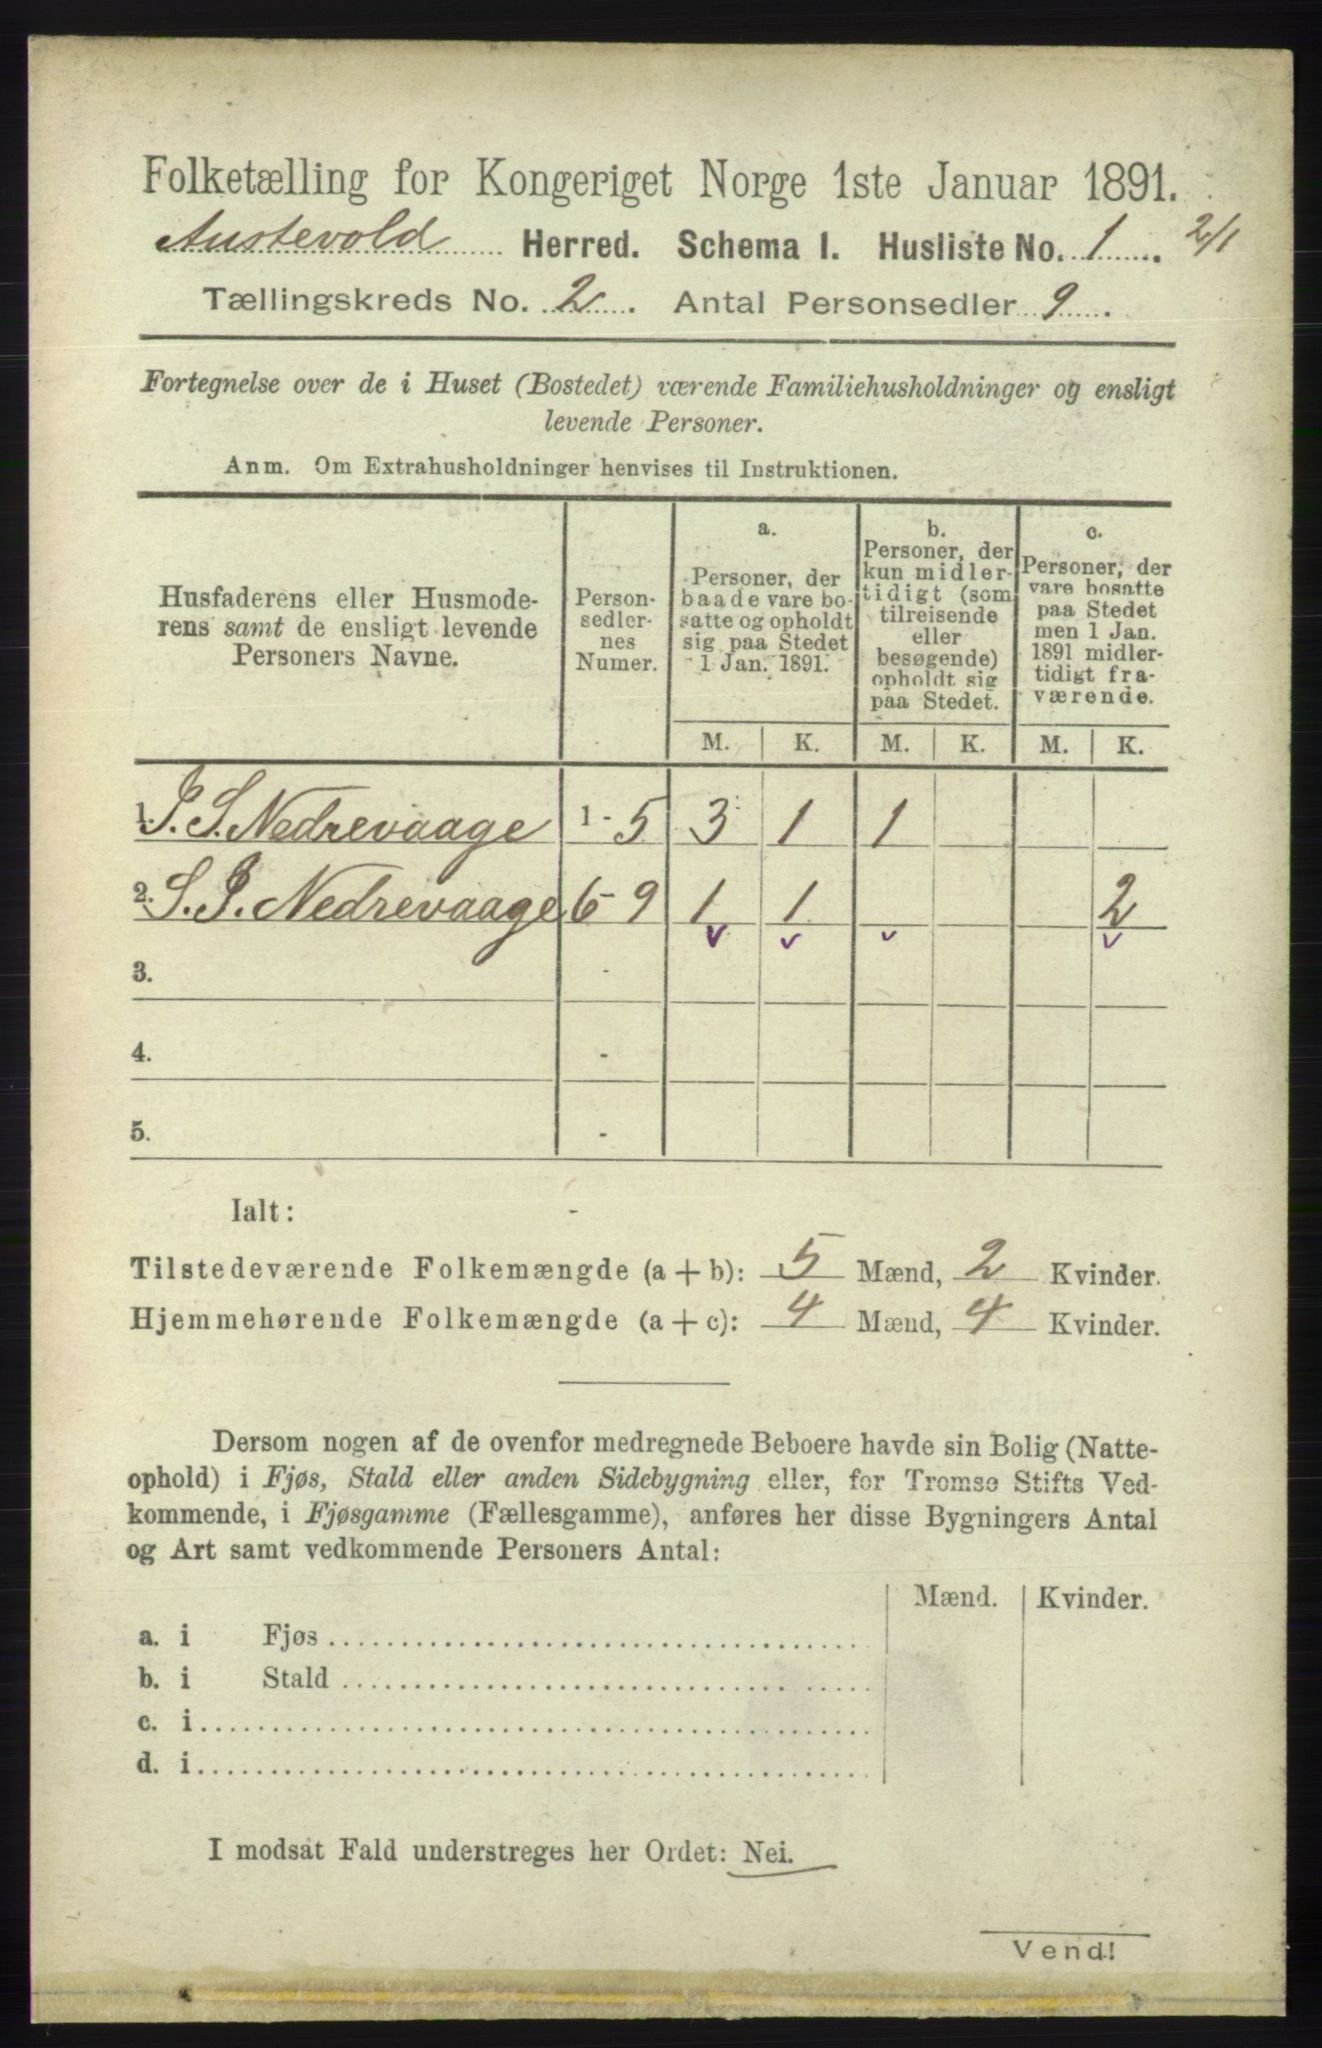 Folketælling for Kongeriget Norge 1ste Januar 1891.
Austevold Herred. Schema I. Husliste No. 1 2/1
Tællingskreds No. 2. Antal Personsedler 9.
Fortegnelse over de i Huset (Bostedet) værende Familiehusholdninger og ensligt
levende Personer.
Anm. Om Extrahusholdninger henvises til Instruktionen.
Husfaderens eller Husmode-
rens samt de ensligt levende
Personers Navne.
Person-
sedler-
nes
Numer.
a.
Personer, der
baade vare bo-
satte og opholdt
sig paa Stedet
1 Jan. 1891.
b.
Personer, der
kun midler-
tidigt (som
tilreisende
eller
besøgende)
opholdt sig
paa Stedet.
c.
Personer, der
vare bosatte
paa Stedet
men 1 Jan.
1891 midler-
tidigt fra-
værende.
M. K. M. K. M. K.
1. P. S. Nedrevaage 1 - 5 3 1 1
2. S. P. Nedrevaage 6 - 9 1 1 2
3. -
4. -
5. -
Ialt: -
Tilstedeværende Folkemængde (a + b): 5 Mænd, 2 Kvinder.
Hjemmehørende Folkemængde (a + c): 4 Mænd, 4 Kvinder.
Dersom nogen af de ovenfor medregnede Beboere havde sin Bolig (Natte-
ophold) i Fjøs, Stald eller anden Sidebygning eller, for Tromsø Stifts Ved-
kommende, i Fjøsgamme (Fællesgamme), anføres her disse Bygningers Antal
og Art samt vedkommende Personers Antal:
Mænd. Kvinder.
a. i Fjøs
b. i Stald
c. i
d. i
I modsat Fald understreges her Ordet: Nei.
Vend!